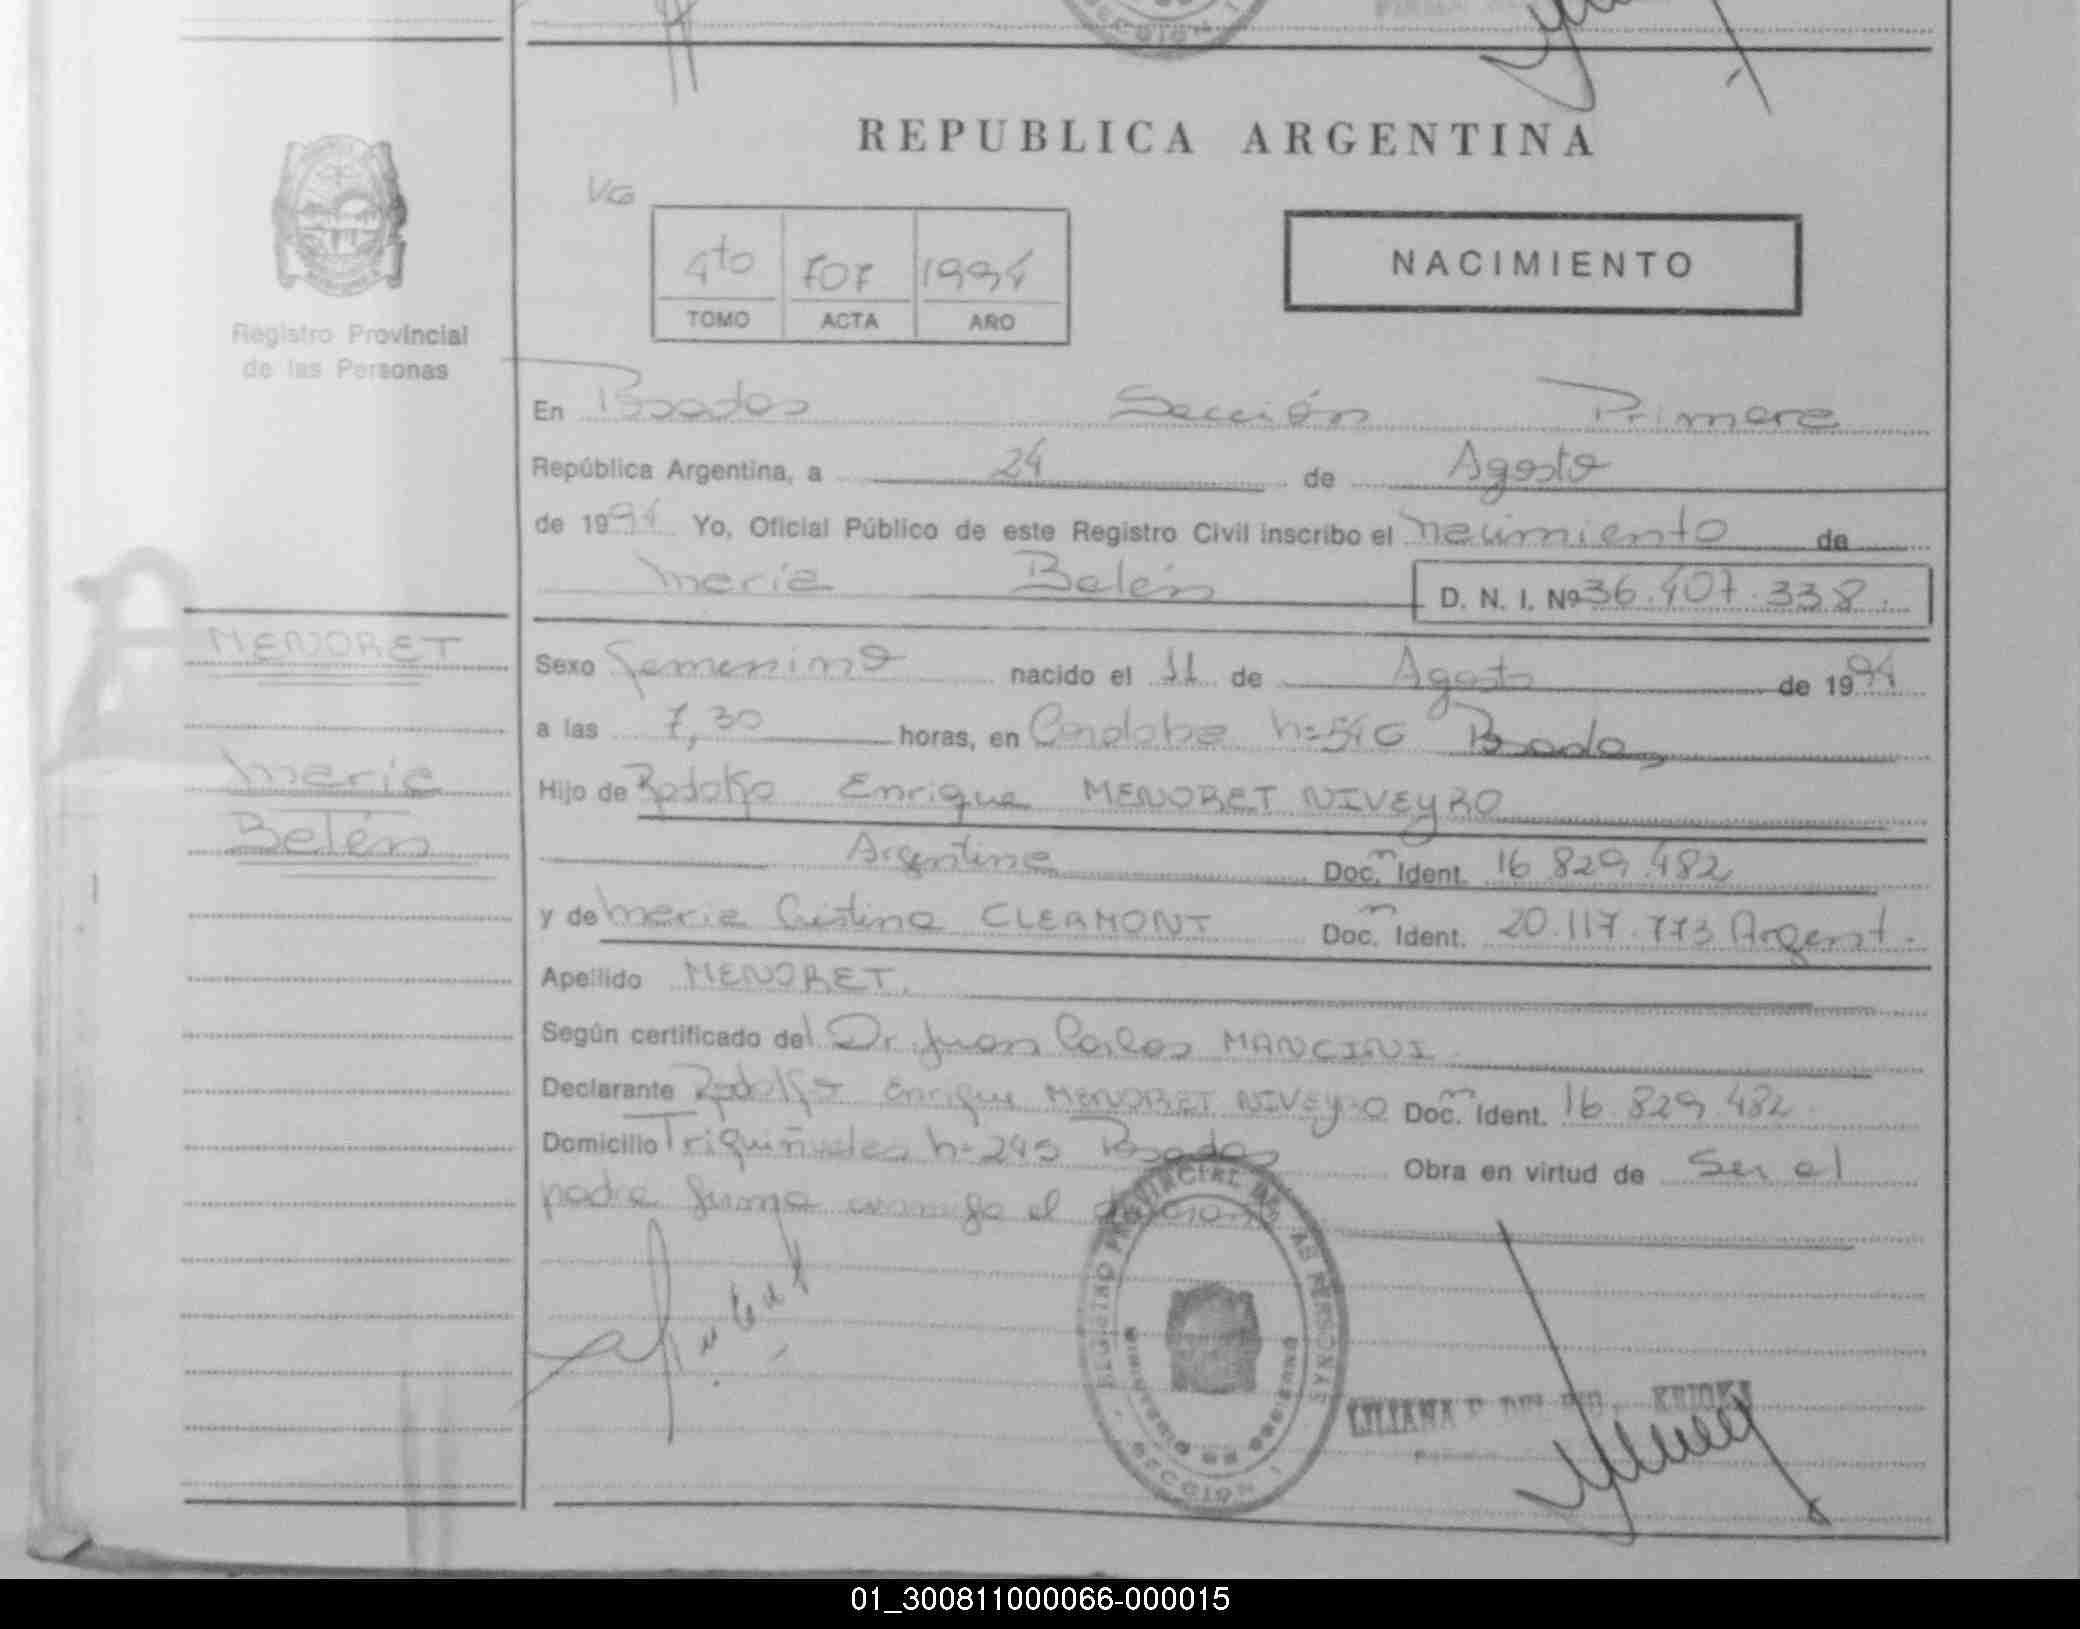 REPUBLICA ARGENTINA
4to 707 1994
TOMO ACTA AÑO
NACIMIENTO
Registro Provincial
de las Personas
En Posadas Sección Primera
República Argentina, a 24 de Agosto
de 1994 Yo, Oficial Público de este Registro Civil inscribo el nacimiento de
María Belén D. N. I. Nº 36.407.338.
MENORET
María
Belén
Sexo femenino nacido el 11 de Agosto de 1994
a las 7,30 horas, en Cordoba n= Posadas
Hijo de Rodolfo Enrique MENORET NIVEYRO
Argentino Doc. Ident. 16.829.482
y de María Cristina CLERMONT Doc. Ident. 20.117.773 Argent.
Apellido MENORET.
Según certificado del Dr. Juan Carlos MANCINI
Declarante Rodolfo Enrique MENORET NIVEYRO Doc. Ident. 16.829.482
Domicilio n= 245 Posadas Obra en virtud de Ser el
padre firma conmigo el
REGISTRO PROVINCIAL DE LAS PERSONAS
SECCION 1
LILIANA
01_300811000066-000015